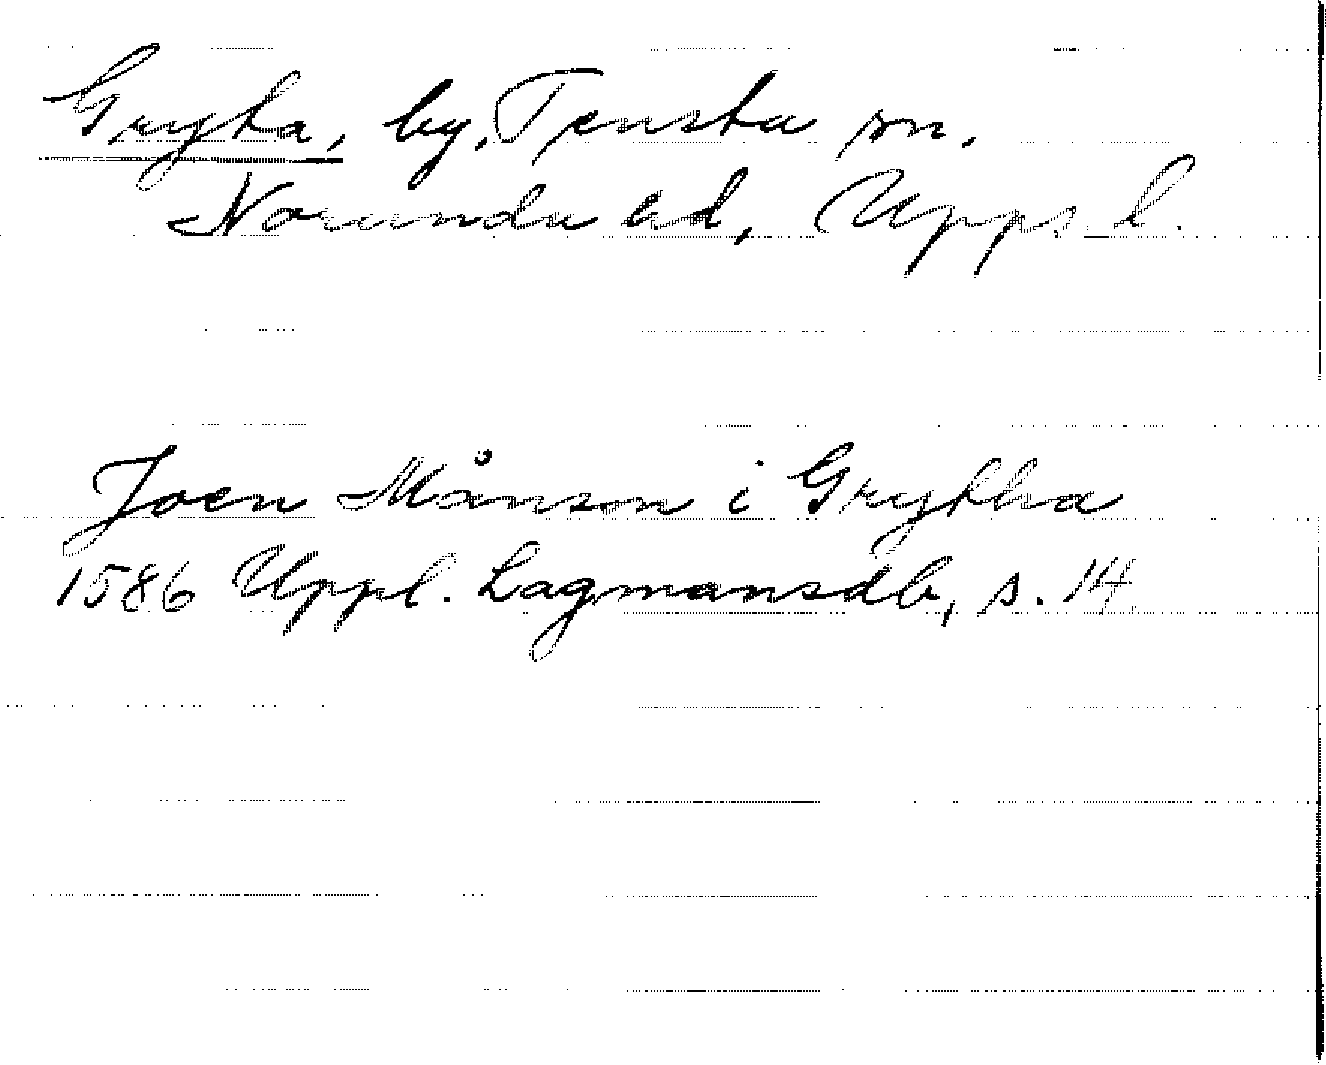 Gryta, by, Tensta sn.
Norunda hd, Upps. l.
Joen Månson i Gryttha
1586 Uppl. Lagmansdb, s. 14.